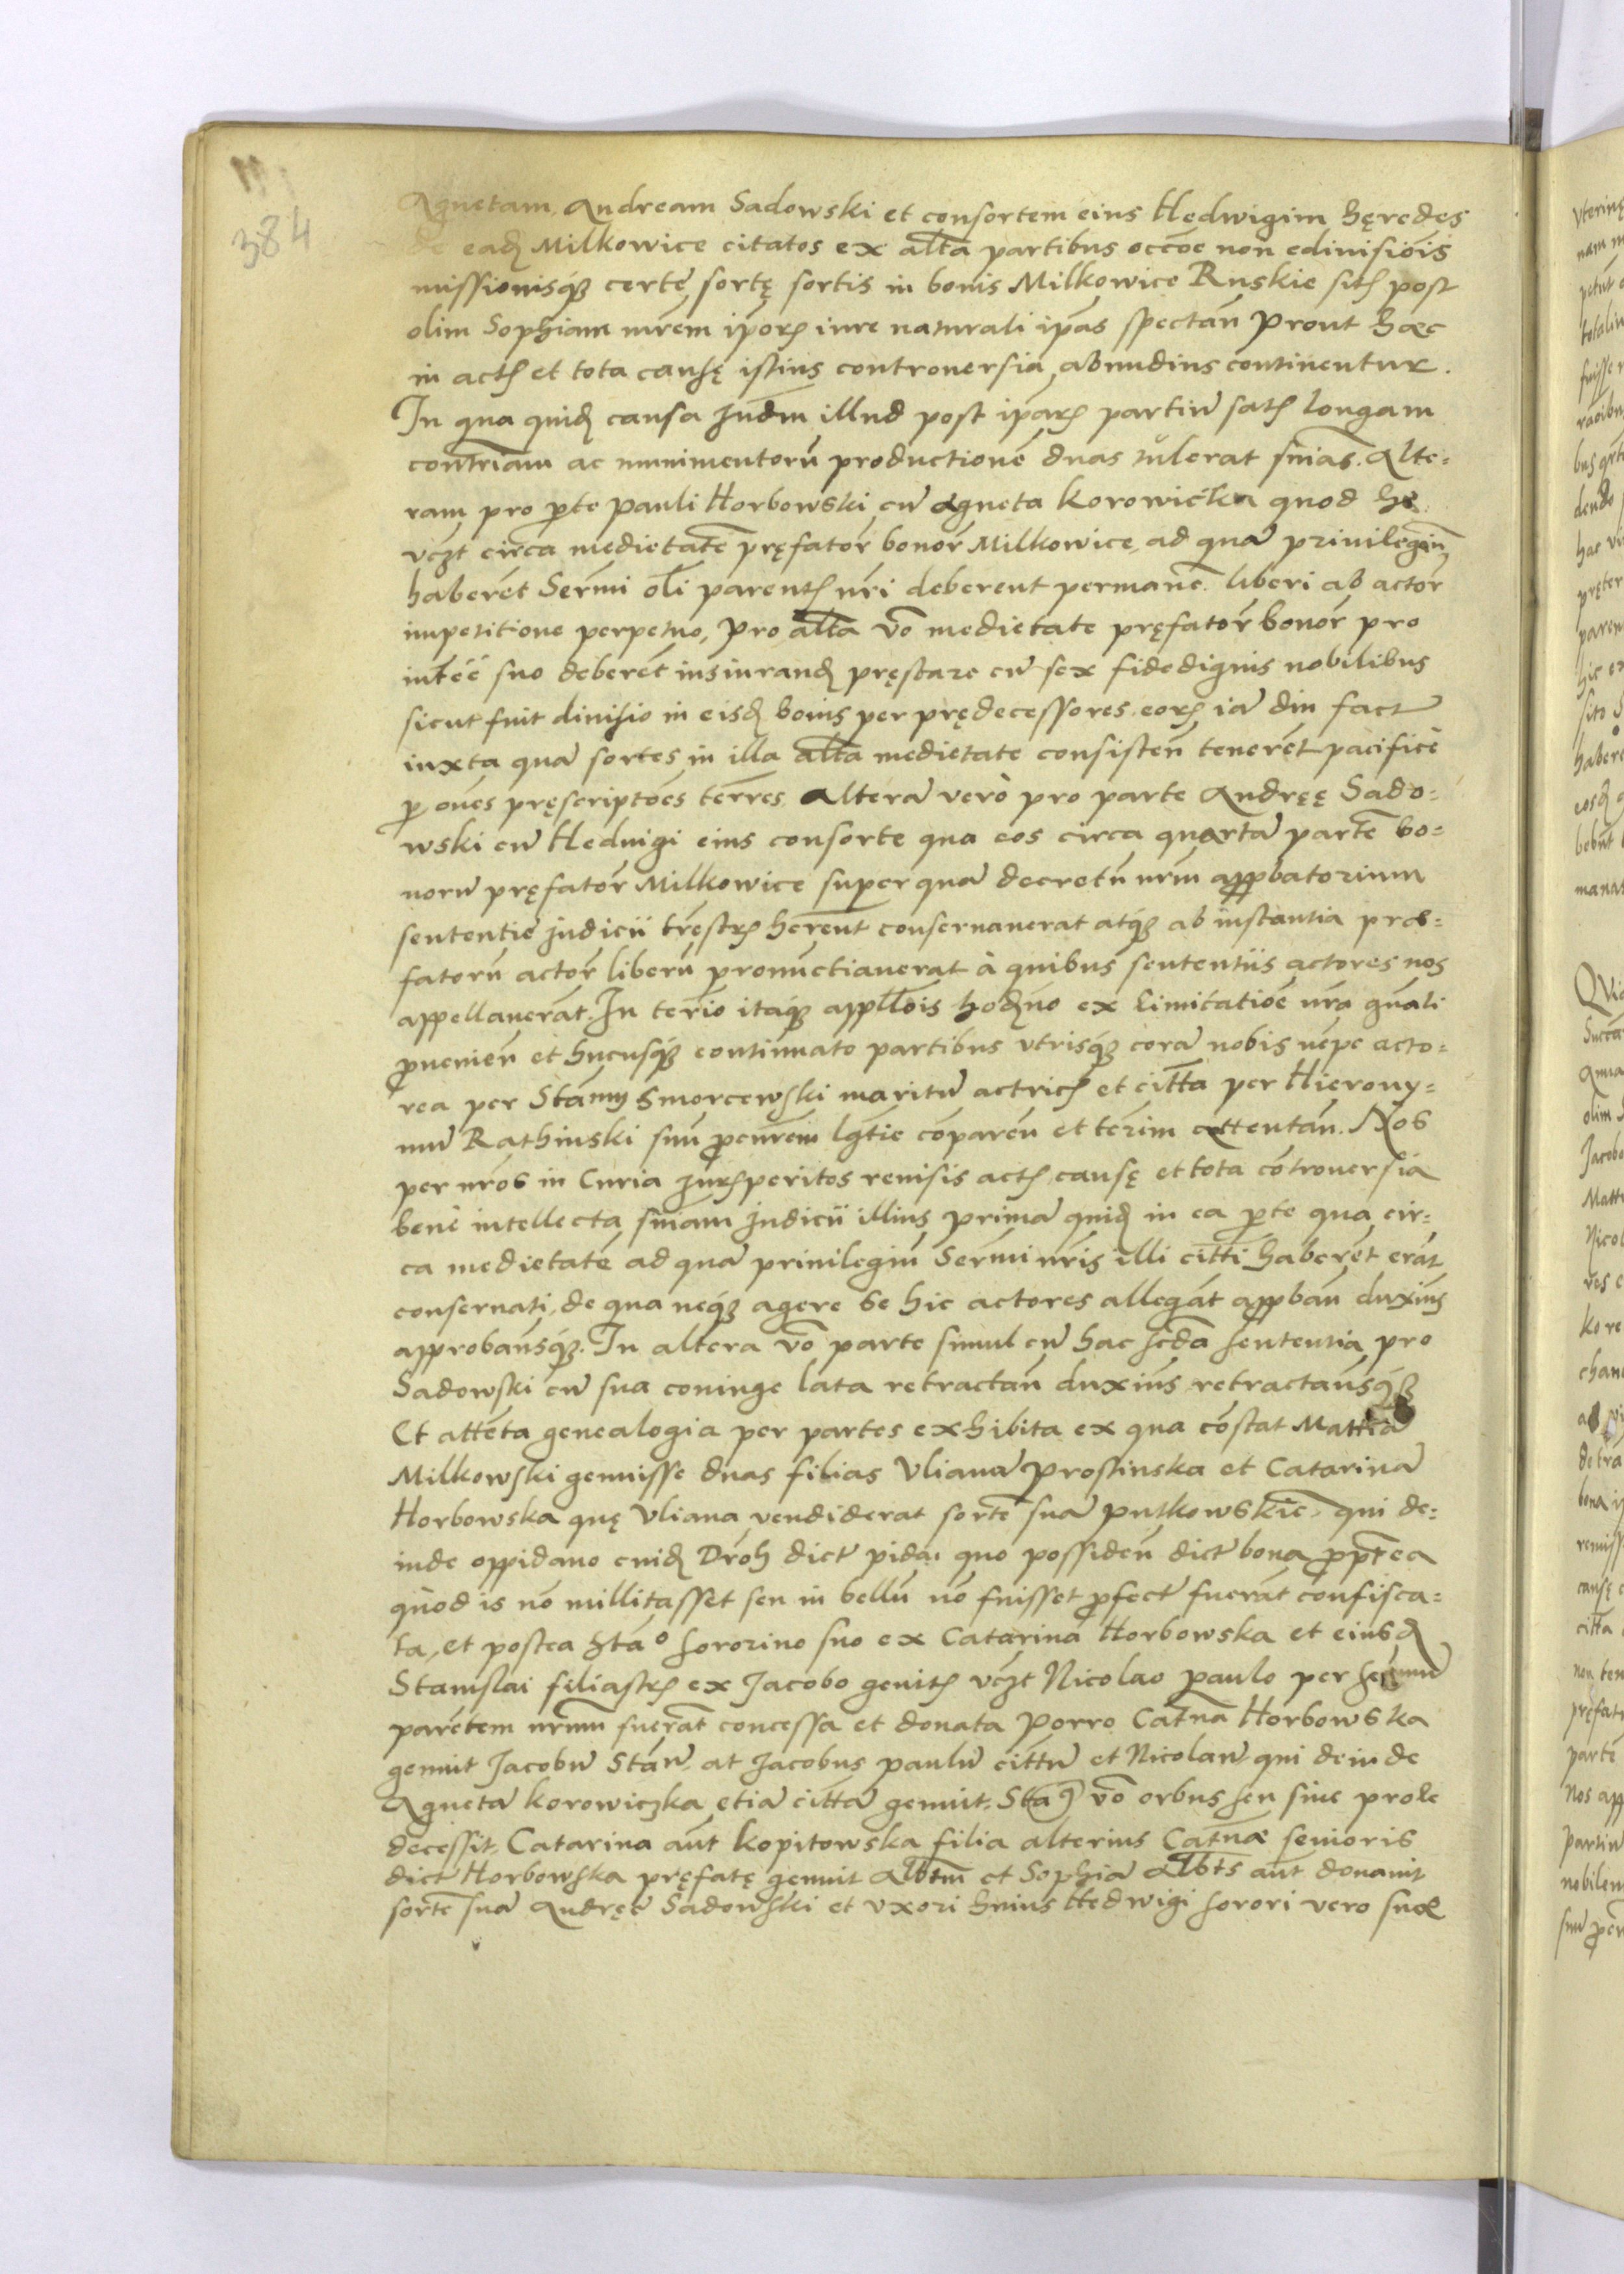 384
Agnetam, Andream Sadowski et consortem eius Hedwigim hęredes
de eadꝫ Milkowice citatos ex altā partibus occōe non edivisiōis
missionisqꝫ certę sortę sortis in bonis Milkowice Ruskie sitꝭ post
olim Sophiam mr̄em ip̄orꝭ iure naturali ip̄as spectan̄ Prout hæc
in actꝭ et tota causę istius controversia abundius continentur.
In qua quidꝫ causa Judm̄ illud post ip̄arꝭ partiū satꝭ longam
contr̄iam ac munimentorū productionē duas tulerat sn̄ias. Alte-
ram pro pte Pauli Horbowski cū Agneta Korowicka quod hi
vcꝫt circa medietatē pręfator̄ bonor̄ Milkowice, ad quā privilegiū
haberēt Serm̄i oli parentꝭ nr̄i deberent permane. liberi ab actor̄
impetitione perpetuo, Pro altā vō medietate pręfator̄ bonor̄ pro
intēē suo deberēt iusiurandꝫ pręstare cū sex fidedignis nobilibus
sicut fuit divisio in eisdꝫ bonis per prędecessores eorꝭ iā diu fact
iuxta quā sortes in illa altā medietate consisten̄ tenerēt pacificè
p oēs pręscriptōes terr̄es. Alterā verò pro parte Andręę Sado-
wski cū Hedvigi eius consorte qua eos circa quartā partē bo-
norū pręfator̄ Milkowice super quā decretū nr̄m appbatorium
sententię Judicii tr̄estrꝭ her̄ent conservaverat atqꝫ ab instantia præ-
fatorū actor̄ liberū pronūctiaverat à quibus sententiis actores nos
appellaverāt. In ter̄io itaqꝫ applōis hodꝫno ex limitatiōe nr̄a gn̄ali
pvenien̄ et hucusqꝫ continuato partibus utrisqꝫ corā nobis nēpe acto-
rea per Stām̄ Smorcewski maritū actricꝭ et cittā per Hierony-
mū Rathinski suū pcur̄em lḡtie cōparen̄ et ter̄im attentān. Nos
per nr̄os in Curia Jurꝭperitos revisis actꝭ causę et tota cōtroversia
benè intellecta sn̄iam Judicii illius primā quidꝫ in ea pte qua cir-
ca medietatē ad quā privilegiū Serm̄i nr̄is illi citti haberēt erāt
conservati, de qua neqꝫ agere se hic actores allegāt appban̄ duxim̄
approbam̄sqꝫ. In altera vō parte simul cū hac scdā sententia pro
Sadowski cū sua coniuge lata retractan̄ duxim̄s retractam̄sqꝫ
Et attēta genealogia per partes exhibita ex qua cōstat Mattiā
Milkowski genuisse duas filias Ulianā Prostinska et Catarinā
Horbowska quę Uliana vendiderat sortē suā Putkowskie, qui de-
inde oppidano cuidꝫ Droh dict pida, quo possiden̄ dict bona ppterea
quòd is nō millitasset seu in bellū nō fuisset pfect fuerāt confisca-
ta, et postea Stāo sororino suo ex Catarina Horbowska et eiusdꝫ
Stanislai filiastrꝭ ex Jacobo genitꝭ vcꝫt Nicolao Paulo per Serm̄ū
parētem nr̄um fuerāt concessa et donata Porro Catn̄a Horbowska
genuit Jacobū Stāū. at Jacobus Paulū cittū et Nicolaū qui deinde
Agnetā Korowiczka etiā cittā genuit. Stā vō orbus seu sine prole
decessit. Catarina aūt Kopitowska filia alterius Catn̄æ senioris
dict Horbowska pręfatę genuit Albt̄m et Sophiā Albt̄s aūt donavit
sortē suā Andręę Sadowski et uxori huius Hedwigi sorori vero suæ